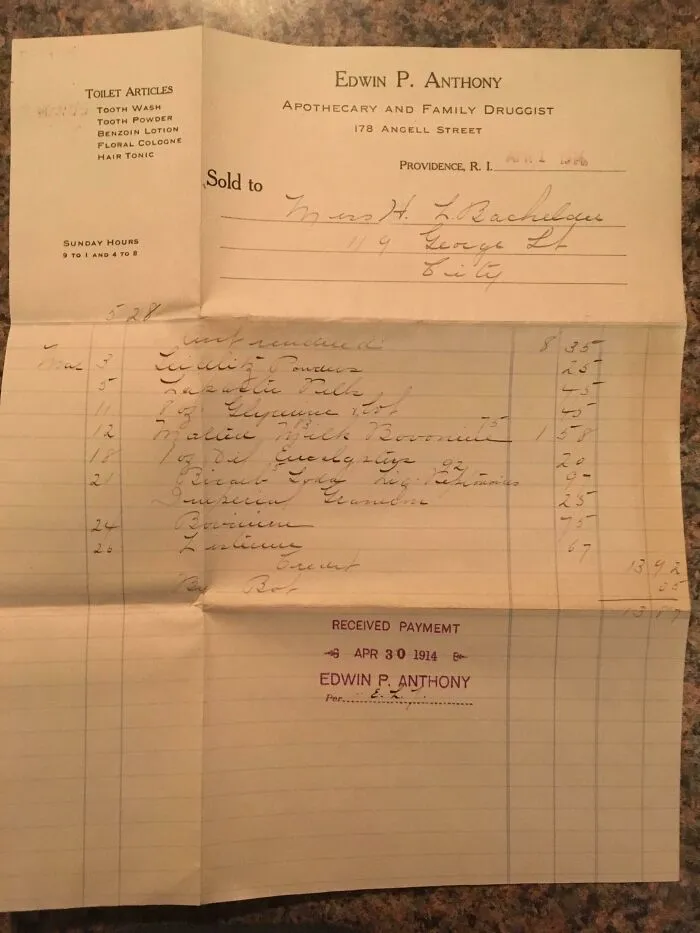 TOILET ARTICLES
TOOTH WASH
TOOTH POWDER
BENZOIN LOTION
FLORAL COLOGNE
HAIR TONIC
SUNDAY HOURS
9 TO 1 AND 4 TO 8
EDWIN P. ANTHONY
APOTHECARY AND FAMILY DRUGGIST
178 ANGELL STREET
PROVIDENCE, R. I. APR 1
Sold to
H. L. Bachelder
119 George St
City
528
rendered 8 35
Mar 3 Seidlitz Powders 25
5 45
11 8 oz Glycerine 45
12 Malted Milk Bovinine 75 1 58
18 1 oz Oil Eucalyptus 20
21 Bicarb Soda
Imperial Granum 25
24 Bovinine 75
26 Listerine 67
Credit 13 92
By Bot 05
13 87
RECEIVED PAYMEMT
APR 30 1914
EDWIN P. ANTHONY
Per